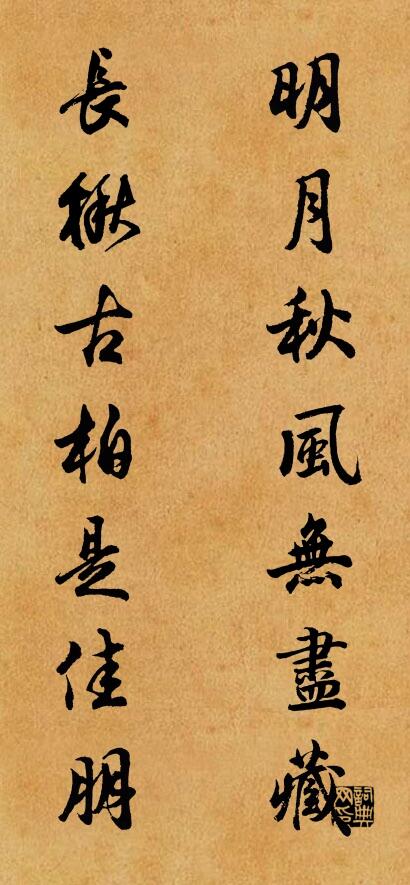 明月秋風無盡藏
長楸古柏是佳朋